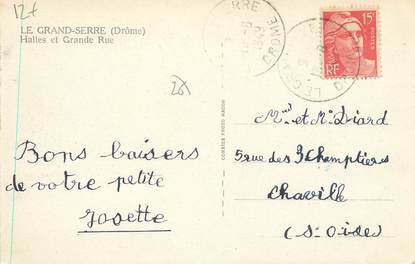 12+
LE GRAND-SERRE (Drôme)
Halles et Grande Rue
RRE
DROME
15F
POSTES
RF
LE GRA
281
Bons baisers
de votre petite
Josette
Mme et Mr Diard
5 rue des 3 Champtiers
Chaville
(S. Oise)